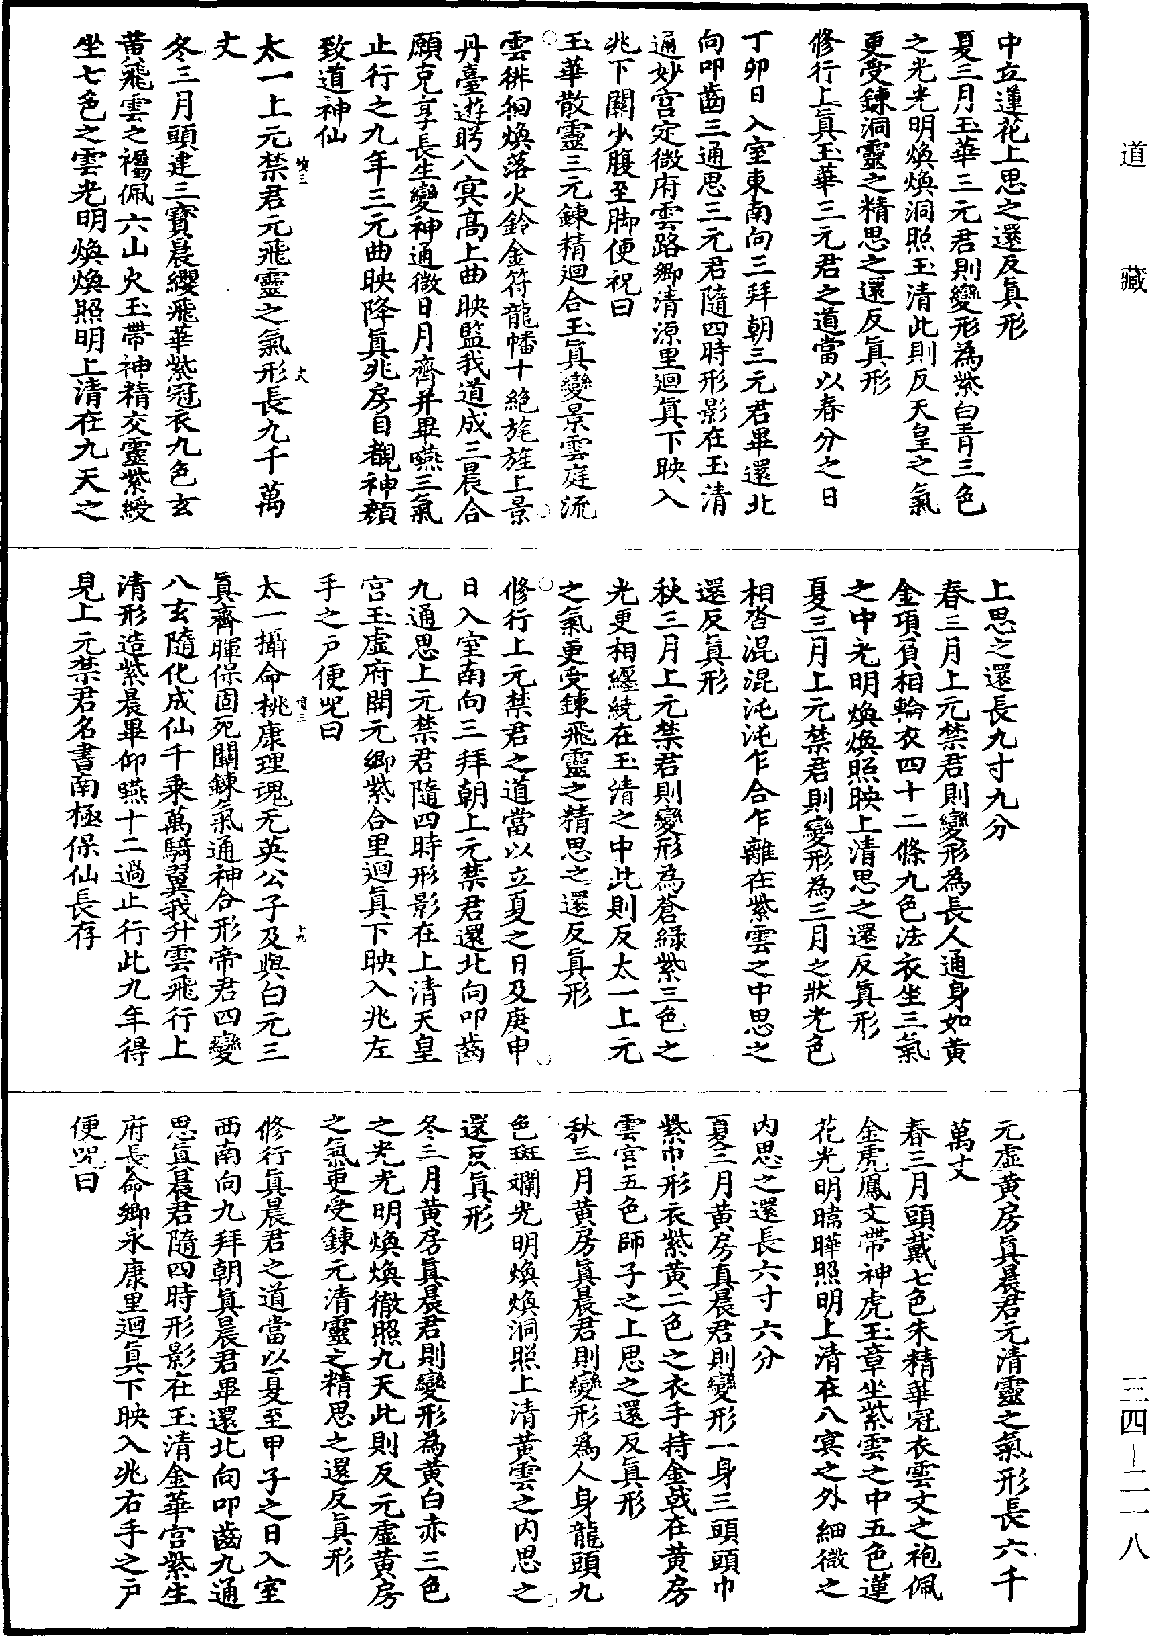 中立蓮花上思之還反眞形
夏三月玉華三元君則變形為紫白青三色
之光光明煥煥洞照玉清此則反天皇之氣
更受鍊洞靈之精思之還反眞形
修行上眞玉華三元君之道當以春分之日
丁卯日入室東南向三拜朝三元君畢還北
向叩齒三通思三元君隨四時形影在玉清
通妙宫定微府雲路鄉清源里迴眞下映入
兆下關少腹至脚便祝曰
玉華散靈三元鍊精迴合玉眞變景雲庭流
雲徘徊煥落火鈴金符龍幡十絶旄旌上景
丹臺遊眄八冥髙上曲映監我道成三晨合
願克享長生變神通微日月齊并畢嚥三氣
止行之九年三元曲映降眞兆房自覩神顏
致道神仙
太一上元禁君元飛靈之氣形長九千萬
丈
冬三月頭建三寳晨纓飛華紫冠衣九色玄
黄飛雲之褐佩六山火玉帶神精交靈紫綬
坐七色之雲光明煥煥照明上清在九天之
上思之還長九寸九分
春三月上元禁君則變形為長人通身如黄
金項負相輪衣四十二條九色法衣坐三氣
之中光明煥煥照映上清思之還反眞形
夏三月上元禁君則變形為三月之狀光色
相沓混混沌沌乍合乍離在紫雲之中思之
還反眞形
秋三月上元禁君則變形為蒼綠紫三色之
光更相纒繞在玉清之中此則反太一上元
之氣更受鍊飛靈之精思之還反眞形
修行上元禁君之道當以立夏之日及庚申
日入室南向三拜朝上元禁君還北向叩齒
九通思上元禁君隨四時形影在上清天皇
宫玉虛府開元鄉紫合里迴眞下映入兆左
手之戶便咒曰
太一攝命桃康理魂无英公子及與白元三
眞齊暉保固死關鍊氣通神合形帝君四變
八玄隨化成仙千乘萬騎翼我升雲飛行上
清形造紫晨畢仰嚥十二過止行此九年得
見上元禁君名書南極保仙長存
元虛黄房眞晨君元清靈之氣形長六千
萬丈
春三月頭戴七色朱精華冠衣雲文之袍佩
金虎鳳文帶神虎玉章坐紫雲之中五色蓮
花光明曜曄照明上清在八冥之外細微之
内思之還長六寸六分
夏三月黄房真晨君則變形一身三頭頭巾
紫巾形衣紫黄二色之衣手持金戟在黄房
雲宫五色師子之上思之還反眞形
秋三月黄房眞晨君則變形爲人身龍頭九
色斑斕光明煥煥洞照上清黄雲之内思之
還反眞形
冬三月黄房眞晨君則變形為黄白赤三色
之光光明煥煥徹照九天此則反元虛黄房
之氣更受鍊元清靈之精思之還反眞形
修行眞晨君之道當以夏至甲子之日入室
西南向九拜朝眞晨君畢還北向叩齒九通
思眞晨君隨四時形影在玉清金華宫紫生
府長命鄉永康里迴眞下映入兆右手之戶
便咒曰
道藏
三四-二一八